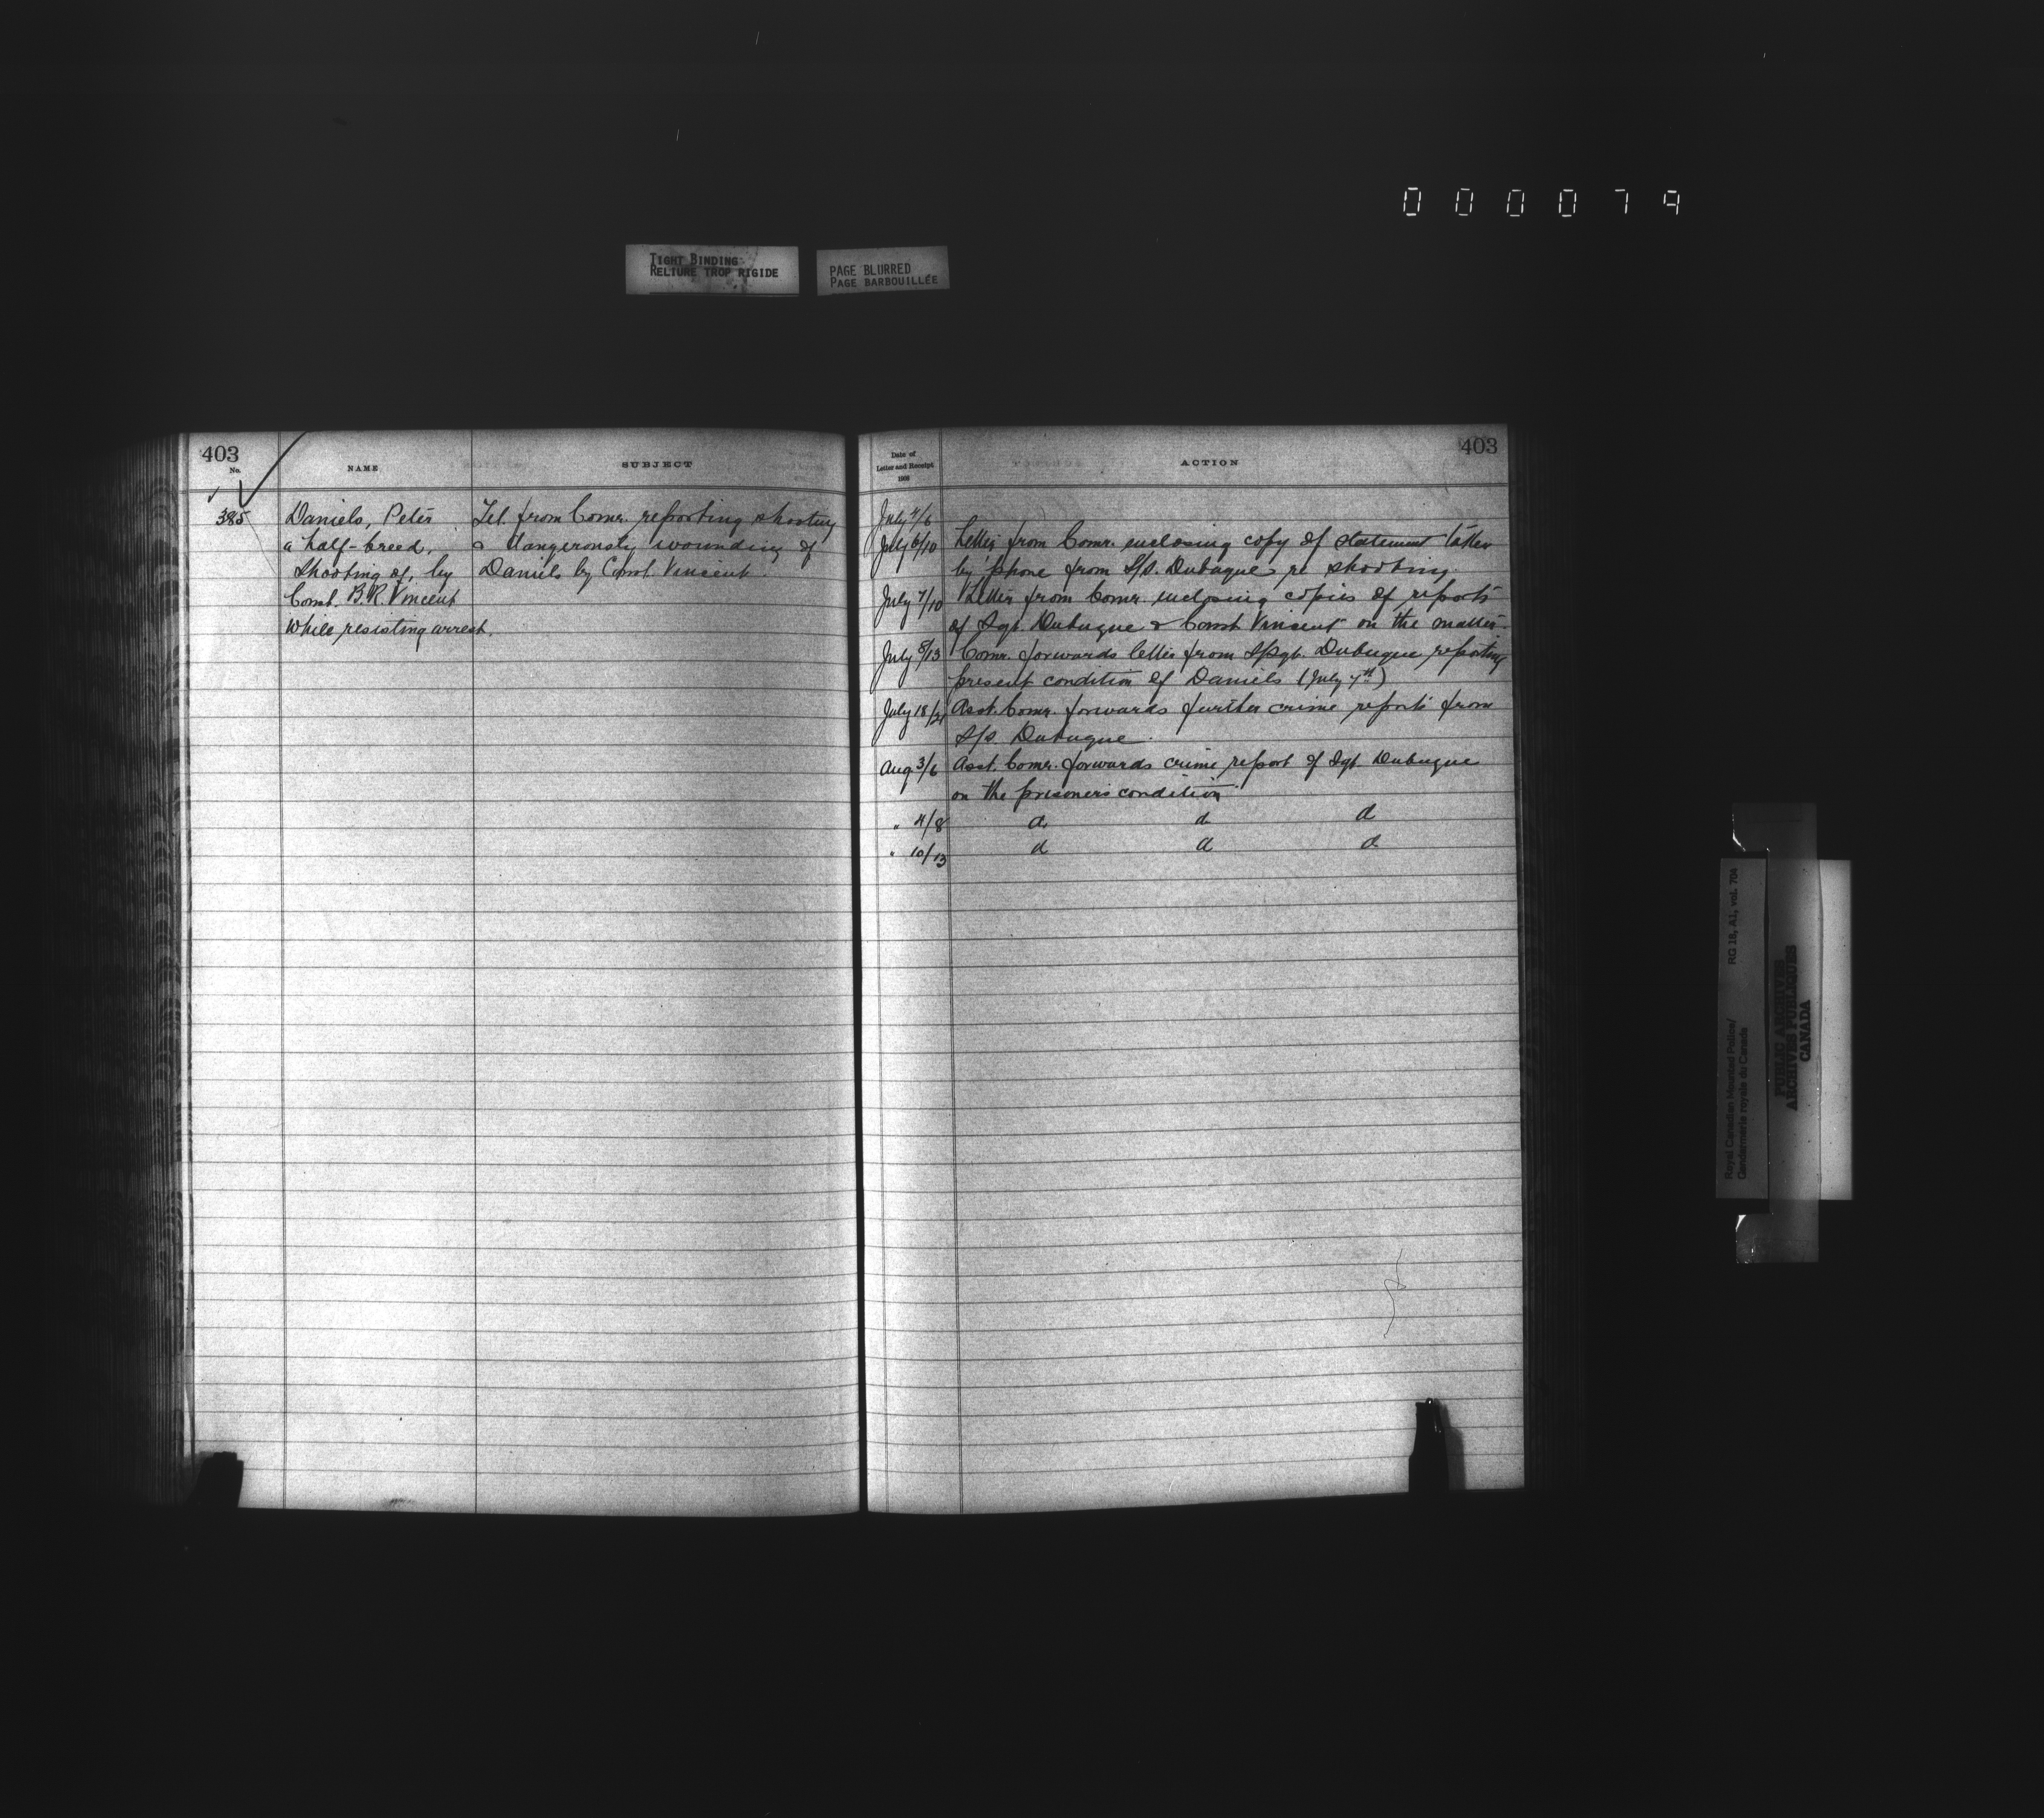 0 0 0 0 7 9
TIGHT BINDING
RELIURE TROP RIGIDE
PAGE BLURRED
PAGE BARBOUILLÉE
403
No.
NAME
SUBJECT
385
Daniels, Peter
a half-breed,
Shooting of, by
Const. B.R. Vincent
While resisting arrest.
Tel. from Comr. reporting shooting
& dangerously wounding of
Daniels by Const. Vincent.
Date of
Letter and Receipt
1908
ACTION
403
July 4/6
July 6/10 Letter from Comr. enclosing copy of statement taken
by phone from S/S. Dubuque re shooting.
July 7/10 Letter from Comr. enclosing copies of reports
of Sgt. Dubuque & Const Vincent on the matter
July 8/13 Comr. forwards letter from S/Sgt. Dubuque reporting
present condition of Daniels (July 7th)
July 18/21 Asst. Comr. forwards further crime reports from
S/S. Dubuque.
Aug 3/6 Asst. Comr. forwards crime report of Sgt Dubuque
on the prisoner's condition
" 4/8 d d d
" 10/13 d d d
Royal Canadian Mounted Police/
Gendarmerie royale du Canada
RG 18, A1, vol. 704
PUBLIC ARCHIVES
ARCHIVES PUBLIQUES
CANADA